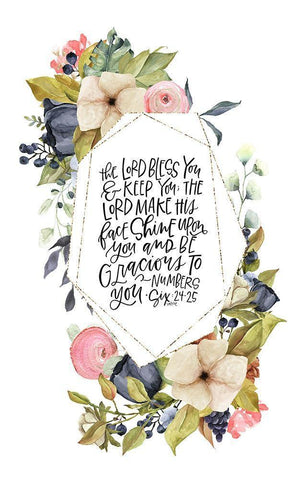 the LORD BLESS YOU
& KEEP YOU; THE
LORD MAKE HIS
face Shine upon
you AND BE
GRACIOUS TO
YOU · NUMBERS
Six: 24-25